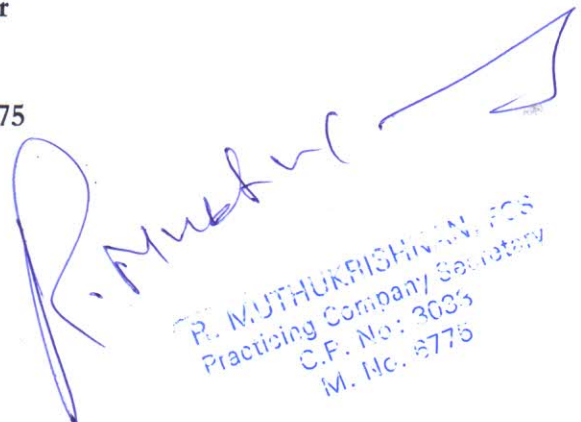 r
75
R. Muthu
R. MUTHUKRISHNAN, FCS
Practicing Company Secretary
C.P. No: 3033
M. No. 6775